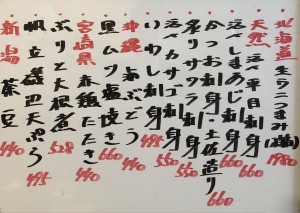 北海道 生ウニつまみ(箱) 1980
天然 活〆平目刺身 660
活〆しまあじ刺身 660
合つお刺身・土佐造り 660
炙りカツオ刺身 550
活〆カサゴ刺身 550
いわし刺身 495
沖縄 海ぶどう 440
黒ムツ塩焼き 660
宮崎県 赤鶏たたき 440
ぶりと大根煮 528
帆立磯辺天ぷら 495
新潟 茶豆 440